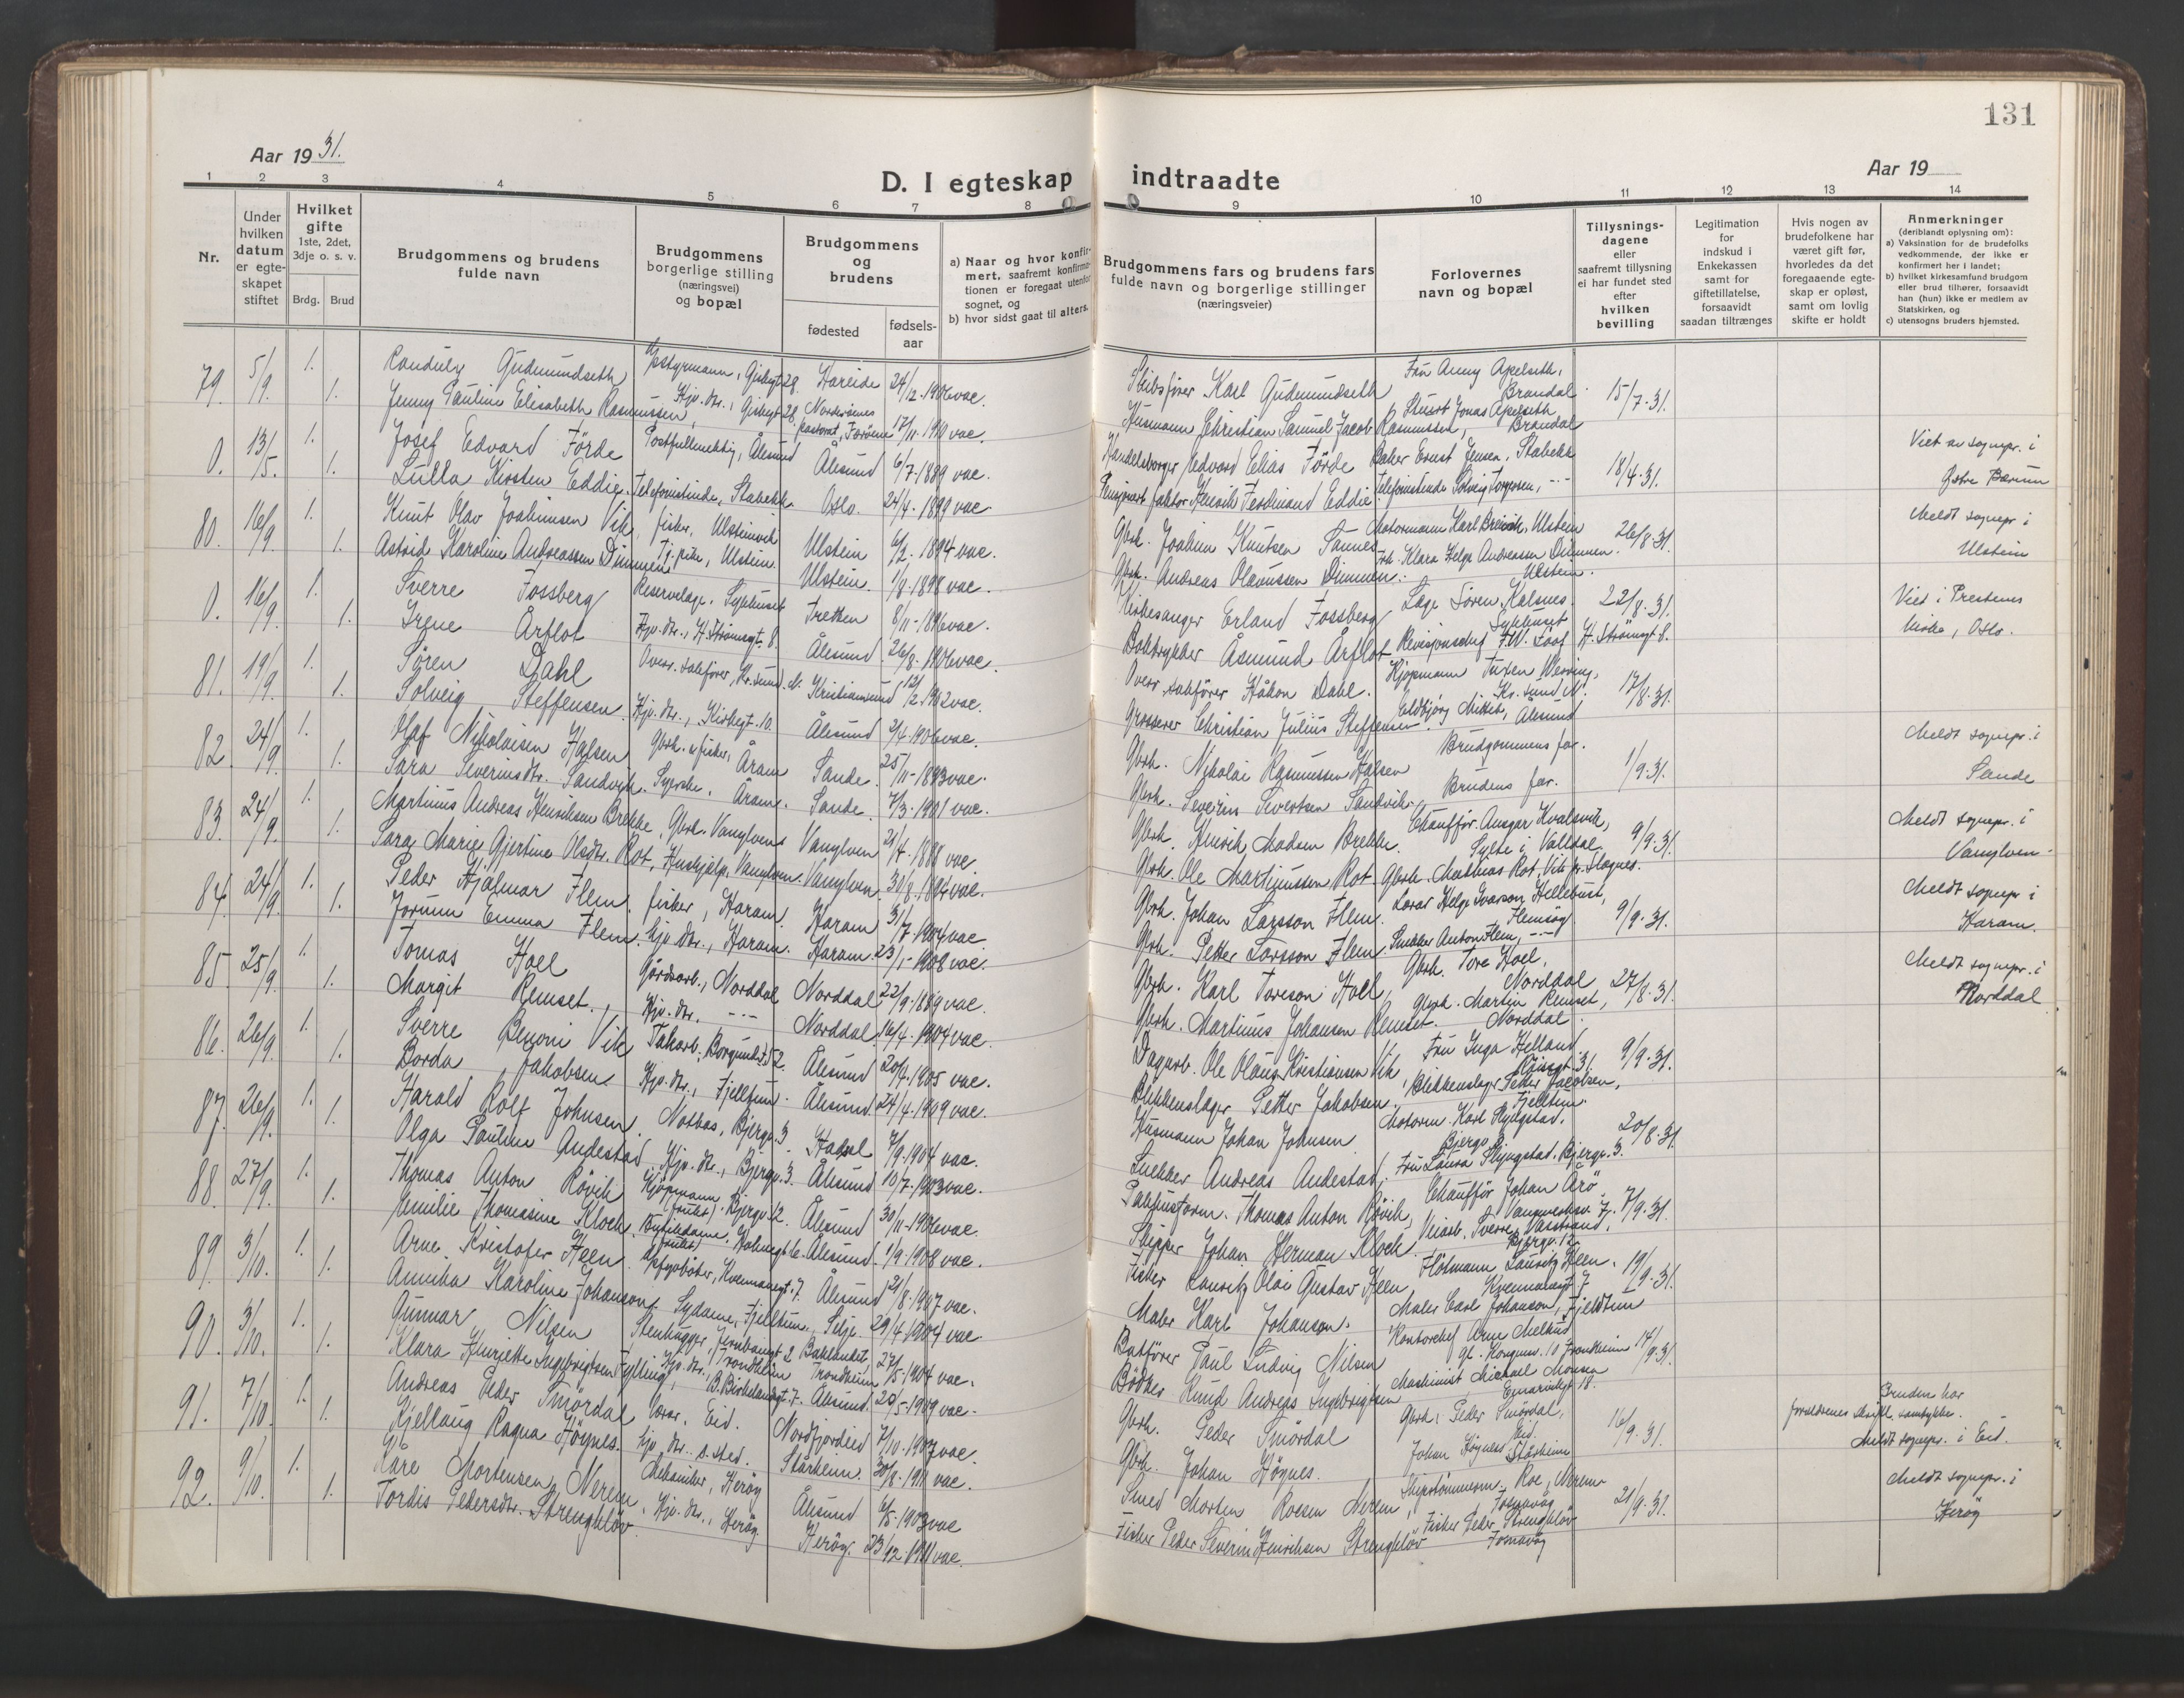 131
Aar 1931.
Aar 19
D. I egteskap indtraadte
1 2 3 4 5 6 7 8 9 10 11 12 13 14
Nr.
Under hvilken datum er egteskapet stiftet
Hvilket gifte 1ste, 2det, 3dje o. s. v.
Brdg. Brud
Brudgommens og brudens fulde navn
Brudgommens borgerlige stilling (næringsvei) og bopæl
Brudgommens og brudens
fødested
fødselsaar
a) Naar og hvor konfirmert, saafremt konfirmationen er foregaat utenfor sognet, og
b) hvor sidst gaat til alters.
Brudgommens fars og brudens fars fulde navn og borgerlige stillinger (næringsveier)
Forlovernes navn og bopæl
Tillysningsdagene eller saafremt tillysning ei har fundet sted efter hvilken bevilling
Legitimation for indskud i Enkekassen samt for giftetillatelse, forsaavidt saadan tiltrænges
Hvis nogen av brudefolkene har været gift før, hvorledes da det foregaaende egteskap er opløst, samt om lovlig skifte er holdt
Anmerkninger (deriblandt oplysning om):
a) Vaksination for de brudefolks vedkommende, der ikke er konfirmert her i landet;
b) hvilket kirkesamfund brudgom eller brud tilhører, forsaavidt han (hun) ikke er medlem av Statskirken, og
c) utensogns bruders hjemsted.
79. 5/9. 1. Gudmundseth Styrmann, Giskegt 28. Hareide 24/12.1906 vac. Skibsfører Karl Gudmundseth Fru Anny Apelseth, Brandal 15/7.31.
1. Jenny Pauline Elisabeth Rasmussen, Hjv. dtr., Giskegt 28. pastorat, Færöene 17/11.1910 vac. Husmann Christian Samuel Jacob Rasmussen, Stuert Jonas Apelseth Brandal
0. 13/5. 1. Josef Edvard Förde Postfullmektig, Ålesund Ålesund 6/7.1889 vac. Handelsborger Edvard Elias Förde Baker Ernst Jensen, Stabekk 18/4.31. Viet av sognepr. i
1. Lulla Kirsten Eddie. Telefonistinde, Stabekk. Oslo. 24/4.1899 vac. Pensjonert faktor Henrik Ferdinand Eddie. Telefonistinde Solveig Torgersen, -"- Østre Bærum
80. 16/9. 1. Knut Olav Joakimsen Vik, fisker, Ulsteinvik Ulstein 6/2.1894 vac. Gbrk. Joakim Knutsen Sannes Motormann Karl Breivik, Ulstein 26/8.31. Meldt sognepr i
1. Astrid Karoline Andreassen Dimmen. Tj. pike, Ulstein. Ulstein. 1/8.1898 vac. Gbrk. Andreas Olavussen Dimmen. Frk. Klara Helga Andreassen Dimmen. Ulstein. Ulstein
0. 16/9. 1. Sverre Fossberg Reservelæge, Sykhuset Tretten 8/11.1896 vac. Kirkesanger Erland Fossberg Læge Sören Kalsnes. Sykhuset 22/8.31. Viet i Prestenes
1. Irene Årflot Hjv. dtr., H. Strömsgt. 8. Ålesund. 26/8.1906 vac. Boktrykker Åsmund Årflot Revisjonschef F.W. Loof H. Strömsgt 8. kirke, Oslo.
81. 19/9. 1. Sören Dahl Overr. sakförer, Kr.sund N. Kristiansund 12/2.1902 vac. Overr. sakförer Håkon Dahl. Kjöpmann Tuxen Werring, Kr. sund N. 17/8.31.
1. Solveig Steffensen. Hjv. dtr., Kirkegt. 10. Ålesund 2/4.1906 vac. Grosserer Christian Julius Steffensen Eldbjörg Mittet, Ålesund
82. 24/9. 1. Olaf Nikolaisen Halsen Gbrk. & fisker, Åram Sande. 25/11.1893 vac. Gbrk. Nikolai Rasmussen Halsen Brudgommens far. 1/9.31. Meldt sognepr. i
1. Sara Severinsdtr. Sandvik. Syerske, Åram. Sande. 7/3.1901 vac. Gbrk. Severin Sivertsen Sandvik. Brudens far. Sande
83. 24/9. 1. Martinus Andreas Henriksen Brekke, Gbrk. Vanylven Vanylven 21/4.1888 vac. Gbrk. Henrik Madsen Brekke. Chauffør Ansgar Kvalsvik, Sylte i Valldal. 9/9.31. Meldt sognepr. i
1. Sara Marie Gjertine Olsdtr. Rot, Hushjelp, Vanylven. Vanylven. 31/8.1894 vac. Gbrk. Ole Martinussen Rot. Gbrk. Mathias Rot, Vik pr. Slagnes. Vanylven.
84. 24/9. 1. Peder Hjalmar Flem. fisker, Haram. Haram 31/7.1904 vac. Gbrk. Johan Larsson Flem. Lærar Helge Ivarson Hellebust, Flemsøy 9/9.31. Meldt sognepr i
1. Jorunn Emma Flem. hjv. dtr., Haram. Haram. 23/1.1908 vac. Gbrk. Petter Larsson Flem. Snekker Anton Flem, -"- Haram.
85. 25/9. 1. Tomas Hoel Gårdsarb., Norddal Norddal 22/9.1889 vac. Gbrk. Karl Toreson Hoel, Gbrk. Tore Hoel, Norddal 27/8.31. Meldt sognepr. i
1. Margit Remset. Hjv. dtr. -"- Norddal. 16/4.1904 vac. Gbrk. Martinus Johansen Remset. Gbrk. Marten Remset, Norddal. Norddal
86. 26/9. 1. Sverre Benoni Vik Fakarb. Borgundv. 52. Ålesund 20/9.1905 vac. Dagarb. Ole Olaus Kristiansen Vik Fru Inga Helland 9/9.31.
1. Borda Jakobsen. Hjv. dtr., Fjelltun. Ålesund. 24/4.1909 vac. Blikkenslager Petter Jakobsen. Blikkenslager Peder Jacobsen, Fjelltun.
87. 26/9. 1. Harald Rolf Johnsen. Notbas, Bjergv. 3. Hadsel 7/9.1904 vac. Husmann Johan Johnsen Motorm. Karl Slyngstad, Bjergv. 3 20/8.31.
1. Olga Pauline Andestad, Hjv. dtr., Bjergv. 3. Ålesund 10/7.1903 vac. Snekker Andreas Andestad, Fru Laura Slyngstad, Bjergv. 3.
88. 27/9. 1. Thomas Anton Rövik Kjöpmann, Bjergv. 12. Ålesund 30/11.1906 vac. Pakhusform. Thomas Anton Rövik, Chaufför Johan Årö 7/9.31.
1. Emilie Thomasine Klock. Butikdame. Holmegt 6. Ålesund. 1/9.1908 vac. Skipper Johan Herman Klock. Sverre Vasstrand, Bjergv. 12
89. 3/10. 1. Arne Kristofer Heen. Kvennangt. 7. Ålesund 21/8.1907 vac. Fisker Lauritz Olai Gustav Heen, Lauritz Heen, 19/9.31.
1. Annika Karoline Johanson. Sydame, Fjelltun. Selje. 29/4.1904 vac. Maler Karl Johanson. Maler Carl Johanson, Fjeldtun
90. 3/10. 1. Gunnar Nilsen Stenhugger, 2 Baklandet, Trondheim Trondheim 27/5.1904 vac. Båtförer Paul Ludvig Nilsen Kontorchef Arne Melhus Trondheim 14/9.31.
1. Klara Henriette Ingebrigtsen Fylling, Hjv. dtr., B. Birkelandsgt. 7. Ålesund. 20/5.1909 vac. Bödker Knud Andreas Ingebrigtsen Maskinist Michael Monsen 18.
91. 7/10. 1. Andreas Peder Smördal, lærar, Eid. Nordfjordeid 7/10.1907 vac. Gbrk. Peder Smördal Gbrk. Peder Smördal, Eid. 16/9.31. Bruden har foreldrenes skriftl. samtykke.
1. Kjellaug Ragna Högnes. hjv. dtr. s. sted. Stårheim. 30/8.1911 vac. Gbrk. Johan Högnes. Johan Högnes Stårheim Meldt sognepr. i Eid.
92. 9/10. 1. Kåre Mortensen Nerem, Mekaniker, Heröy Ålesund 6/5.1903 vac Smed Morten Roesen Nerem, Skipstömmerm. Roe Nerem Fosnavåg 21/9.31. Meldt sognepr. i
1. Tordis Pedersdtr. Strengehlöv. Hjv. dtr., Heröy. Heröy. 23/12.1911 vac. Fisker Peder Severin Henriksen Strengehlöv Fisker Peder Strengehlöv Fosnavåg Heröy